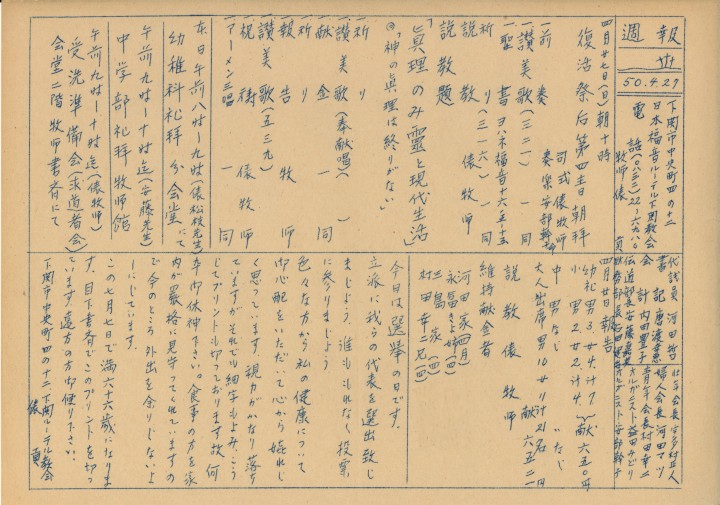 週報
50.4.27
下関市中央町四の十二
日本福音ルーテル下関教会
電話(〇八三二)22-六九八〇
牧師 俵 眞
四月廿七(日)朝十時
復活祭后第四主日朝拝
司式 俵牧師
奏楽 安部幹
一前奏
一讃美歌(三二一) 一同
一聖書 ヨハネ福音十六・五-十五
祈り
一讃美歌(三一六) 一同
説教 俵牧師
説教題
「眞理のみ霊と現代生活」
◎「神の眞理は終りがない」
祈り
一讃美歌(奉献唱)
一献金 一同
祈り
一報告 牧師
一讃美歌(五三九) 一同
一祝祷 俵牧師
一アーメン三唱 一同
本日午前八时-九时(俵松枝先生)
幼稚科礼拝 分会堂にて
午前九时-十时迄(安藤先生)
中学部礼拝 牧師館
午前九时-十时迄(俵牧師)
受洗準備会(求道者会)
会堂二階牧师書斉にて
代議員 河田哲
書記 唐渡恵
会計 内田豊子
伝道部長 安藤嘉
壮年会長 宇多村
婦人会長 河田マツ
青年会長 村田幸二
オルガニスト 益田みどり
オルガニスト 安部幹子
四月廿日報告
幼礼 男3 女4 計7 献六五〇円
小 男2 女2 計4 〃なし
中 男なし
大人出席 男10 女11 計21名
献六五二一円
説教 俵牧師
維持献金者
河田家(四月)
永富きよ姉(四)
三島家(四)
村田幸二兄(四)
今日は選挙の日です。
立派に我らの代表を選出致し
ましよう 誰ももれなく投票
に参りましよう
色々な方から私の健康について
御心配をいただいて心から嬉れし
く思っています。視力がかなり落ち
ていますがそれでも細字もよみ、こう
してプリントも切っております故何
卒御休神下さい。食事の方を家
内が厳格に見守ってくれていますの
で今のところ外出を余りしないよ
うにしています。
この七月七日で満六十六歳になりま
す。目下書斉でこのプリントを切っ
ています。遠方の方御便り下さい。
下関市中央町四の十二 下関ルーテル教会
俵 眞